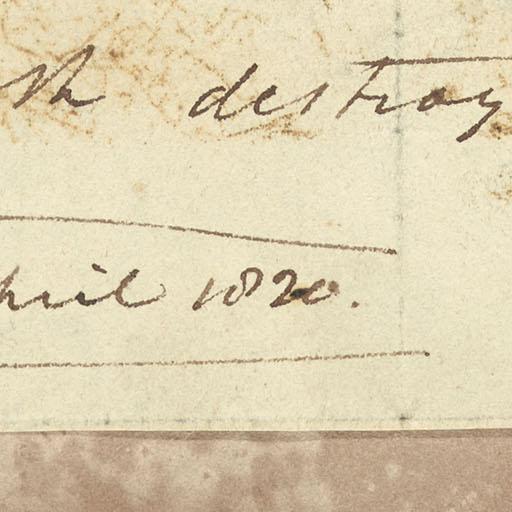 destroy
pril 1820.